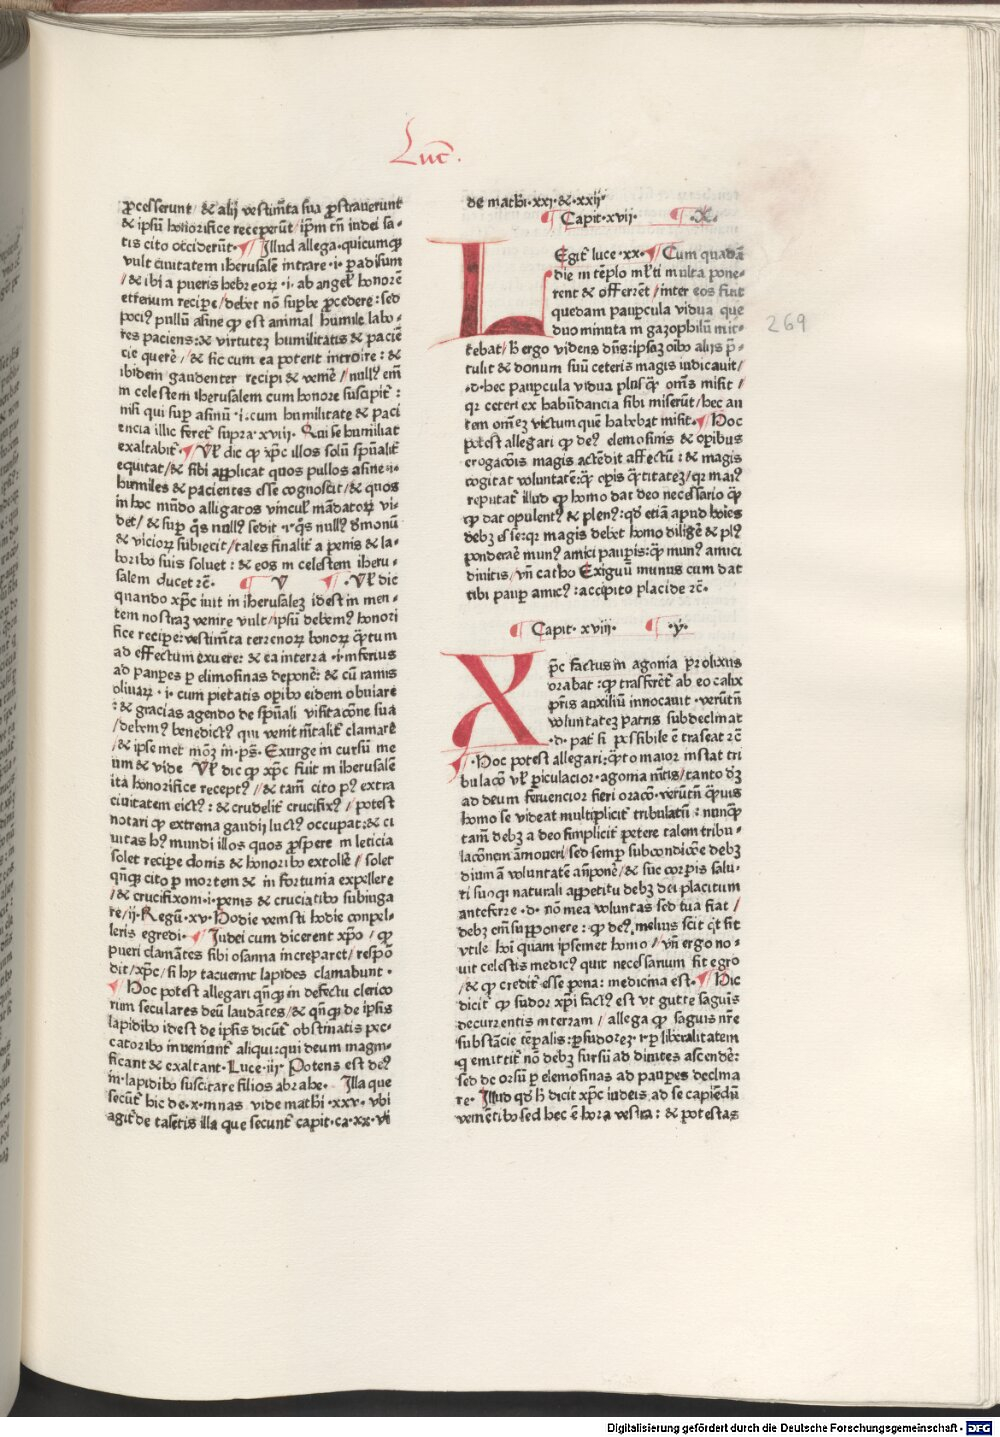 Luc̄.
ꝓcesserunt / & alij vestimēta sua ꝓstrauerunt
& ipsū honorifice receperūt / ipm̄ tn̄ iudei sa-
tis cito occiderūt. ¶ Illud allega. quicumqꝫ
vult ciuitatem iherusalē intrare .i. paradisum
& ibi a pueris hebreoꝝ .i. ab angel' honorē
eternum recipe / debet nō supbe ꝓcedere: sed
poci⁹ pullū asine qꝫ est animal humile labo-
res paciens: & virtutez humilitatis & paciē
cie querē / & sic cum ea poterit introire: &
ibidem gaudenter recipi & venie / null⁹ em̄
in celestem iherusalem cum honore suscipit̄ :
nisi qui sup asinū .i. cum humilitate & paci
encia illic feret̄ supra xviii. Qui se humiliat
exaltabit̄. ¶ Vl' dic qꝫ xp̄c illos solū sp̄ualit̄
equitat / & sibi applicat quos pullos asine .i.
humiles & pacientes esse cognoscit / & quos
in hoc mūdo alligatos vincul' mādatoꝝ vi-
det / & sup q̄s null⁹ sedit .i. q̄s null⁹ demonū
& vicioꝝ subiecit / tales finalit̄ a penis & la-
boribꝰ suis soluet : & eos in celestem iheru-
salem ducet ⁊c̄. ¶ V ¶ . Vl' dic
quando xp̄c iuit in iherusalez idest in men-
tem nostraz venire vult / ipsū debem⁹ honori
fice recipe: vestimēta terrenoꝝ bonoꝝ q̄ntum
ad effectum exuere: & ea in terra .i. inferius
ad paupes p elimosinas deponē: & cū ramis
oliuaꝝ .i. cum pietatis opibꝰ eidem obuiare
: & gracias agendo de sp̄uali visitacōne sua
/ debem⁹ benedict⁹ qui venit mētalit̄ clamare
/ & ipse met mōꝫ in ps̄. Exurge in cursū me
um & vide Vl' dic qꝫ xp̄c fuit in iherusalē
ita honorifice recept⁹ / & tam̄ cito p⁹ extra
ciuitatem eict⁹ : & crudelit̄ crucifix⁹ / potest
notari qꝫ extrema gaudij luct⁹ occupat: & ci
uitas h⁹ mundi illos quos ꝓspere in leticia
solet recipe donis & honoribꝰ extollē / solet
qn̄qꝫ cito p mortem & in fortunia expellere
/ & crucifixom .i. penis & cruciatibꝰ subiuga
re / ij. Regū. xv. Hodie venisti hodie conpel-
leris egredi. ¶ Iudei cum dicerent xp̄o / qꝫ
pueri clamātes sibi osanna increparet / respō
dit / xp̄c / si hy tacuerint lapides clamabunt .
¶ Hoc potest allegari qn̄qꝫ in defectu clerico
rum seculares deū laudātes / & qn̄qꝫ de ipsis
lapidibꝰ idest de ipsis dicūt̄ obstinatis pec-
catoribꝰ inueniunt̄ aliqui: qui deum magni
ficant & exaltant. Luce .iij. Potens est de⁹
in lapidibꝰ suscitare filios abrahe. Illa que
secūt̄ hic de .x. mnas vide math̄i .xxv. vbi
agit̄ de talētis illa que secunt̄ capit. ca. xx. vi
de math̄i .xxj. & .xxij.
¶ Capit. xvij. ¶ .X.
LEgit̄ luce .xx. ¶ Cum quadā
die in tēplo ml̄ti multa pone-
rent & offerrēt / inter eos fuit
quedam paupcula vidua que
duo minuta in gazophilū mit-
tebat / h̄ ergo videns dn̄s: ipsaz oībꝰ alijs p̄-
tulit & donum suū ceteris magis iudicauit /
.d. hec paupcula vidua plus qꝫ om̄s misit /
qꝛ ceteri ex habūdancia sibi miserūt / hec au
tem om̄ez victum quē habebat misit. ¶ Hoc
potest allegari qꝫ de⁹ elemosinis & opibus
erogacōis magis actēdit affectū : & magis
cogitat voluntatē: qꝫ opis q̄ntitatez / qꝛ mai⁹
reputat̄ illud qꝫ homo dat deo necessario qꝫ
qꝫ dat opulent⁹ & plen⁹: qd̄ etiā apud hoīes
debꝫ esse: qꝛ magis debet homo diligē & pl⁹
ponderaē mun⁹ amici paupis: qꝫ mun⁹ amici
diuitis / vn̄ catho Exiguū munus cum dat
tibi paup amic⁹ : accipito placide ⁊c̄.
¶ Capit. xviij. ¶ .y.
Xp̄c factus in agonia prolixius
orabat : qꝫ trāsferēt̄ ab eo calix
pr̄is auxiliū innocauit . verūtn̄
voluntatez patris subdeclinat
.d. pat̄ si possibile ē traseat ⁊c̄
¶ . Hoc potest allegari: q̄nto maior instat tri
bulacō vl' piculacior . agonia mētis / tanto dꝫ
ad deum feruencior fieri oracō . verūtn̄ q̄muis
homo se videat multiplicit̄ tribulatū : nunqꝫ
tam̄ debꝫ a deo simplicit̄ petere talem tribu-
lacōnem āmoueri / sed semp sub condicōe debꝫ
diuinā voluntatē an̄ponē / & sue corpis salu-
ti suoqꝫ naturali appetitu debꝫ dei placitum
anteferre .d. nō mea voluntas sed tua fiat /
debꝫ em̄ supponere : qꝫ de⁹, melius scit qd̄ sit
vtile hoī quam ipsemet homo / vn̄ ergo no-
uit celestis medic⁹ quit necessarium sit egro
/ & qꝫ credit̄ esse pena: medicina est. ¶ Hic
dicit̄ qꝫ sudor xp̄i fact⁹ est vt gutte saguīs
decurrentis in terram / allega qꝫ saguīs nr̄e
substācie tēpalis: p sudorez .i. p liberalitatem
q̄ emittit̄ nō debꝫ sursū ad diuites ascendē:
sed deorsū p elemosinas ad paupes declina
re. Illud qd̄ h̄ dicit xp̄c iudeis ad se capiendū
veniētibꝰ sed hec ē hora vestra : & potestas
269
Digitalisierung gefördert durch die Deutsche Forschungsgemeinschaft - DFG